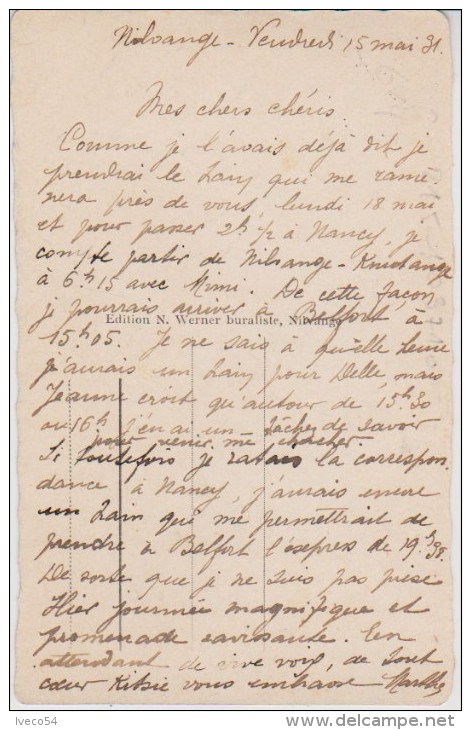 Nilvange - Vendredi 15 mai 31.
Mes chers chéris.
Comme je l'avais déjà dit je
prendrai le train qui me ramè
nera près de vous, lundi 18 mai
et pour passer 2h 1/2 à Nancy, je
compte partir de Nilvange - Knutange
à 6h15 avec Mimi. De cette façon
je pourrais arriver à Belfort à
Edition N. Werner buraliste, Nilvange
15h05. Je ne sais à quelle heure
j'aurais un train pour Delle, mais
Jeanne croit qu'autour de 15h30
ou 16h j'en ai un - tâchez de savoir
pour venir me chercher.
Si toutefois je ratais la correspon
dance à Nancy, j'aurais encore
un train qui me permettrait de
prendre à Belfort l'express de 19h38.
De sorte que je ne suis pas
Hier journée magnifique et
promenade ravissante. En
attendant de vive voix, de tout
cœur vous embrasse Marthe
Iveco54